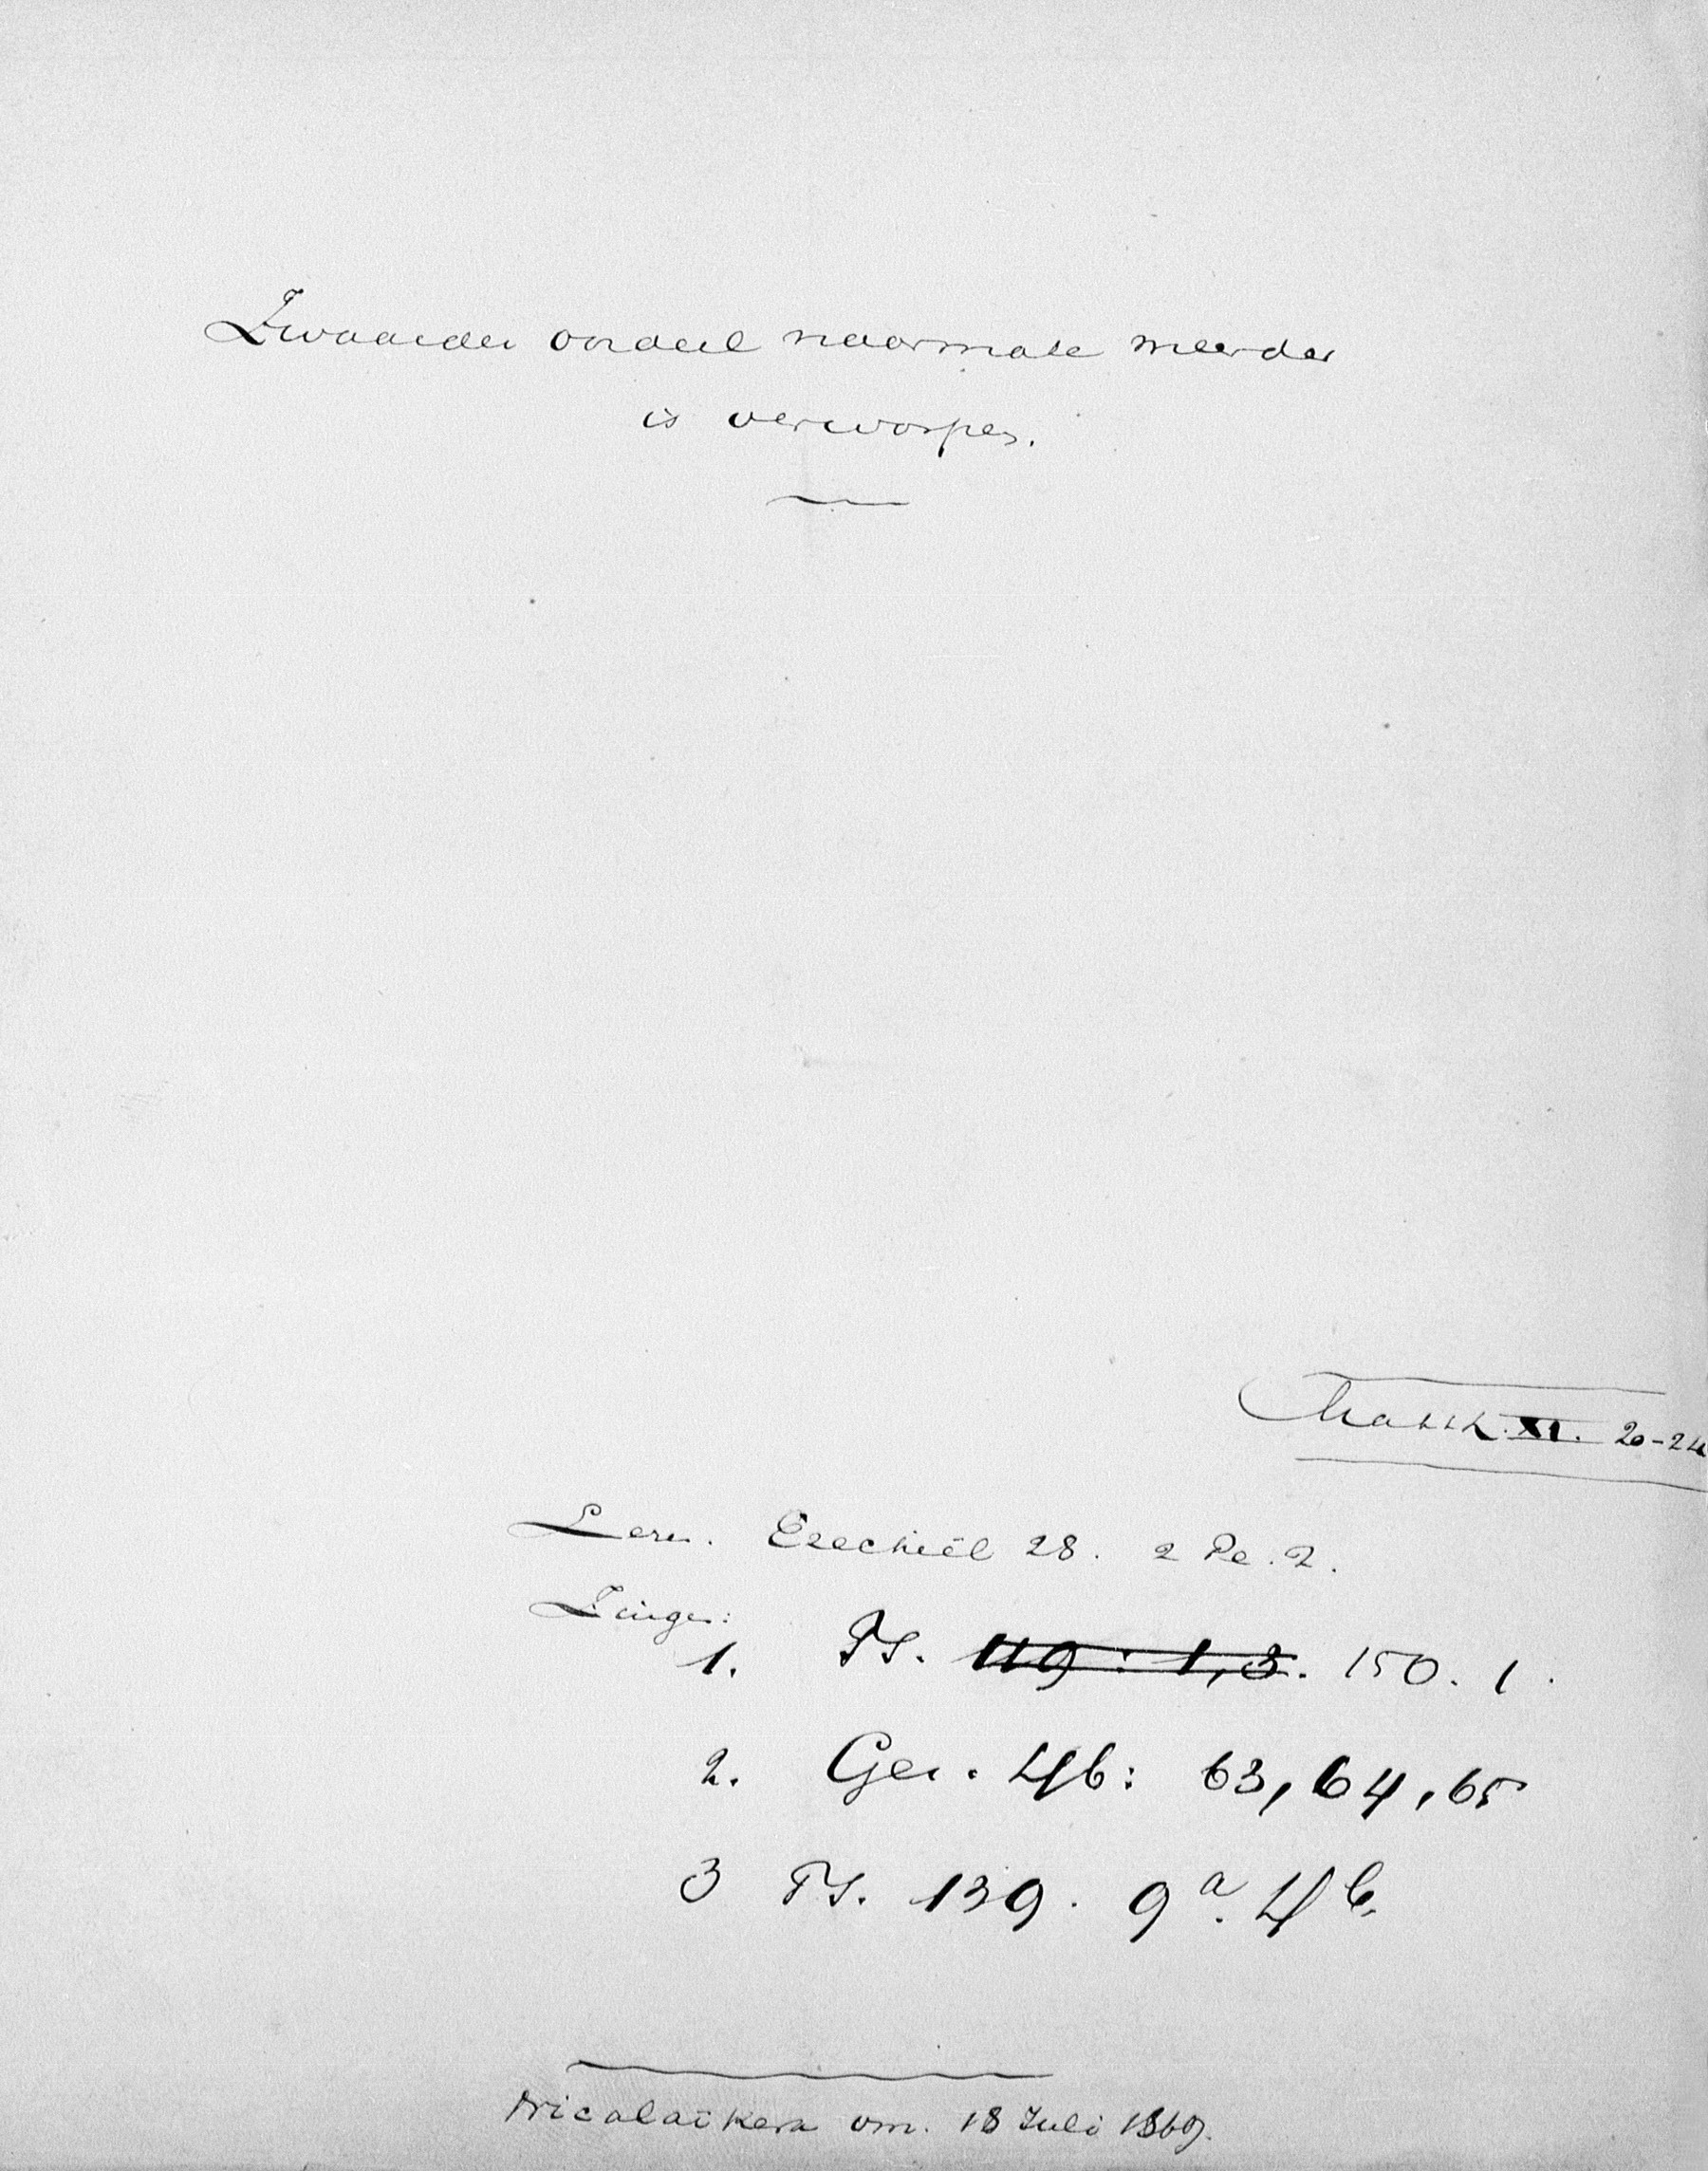 Zwaarder oordeel naarmate meerder
is verworpen.
Matth. XI. 20-24
Lezen. Ezechiël 28. 2 Pe. 2.
Zingen:
1. Ps. 119 : 1, 3. 150. 1.
2. Gez. 46: 63, 64, 65
3 Ps. 139. 9a. 4b.
Nicolaïkerk vm. 18 Juli 1869.